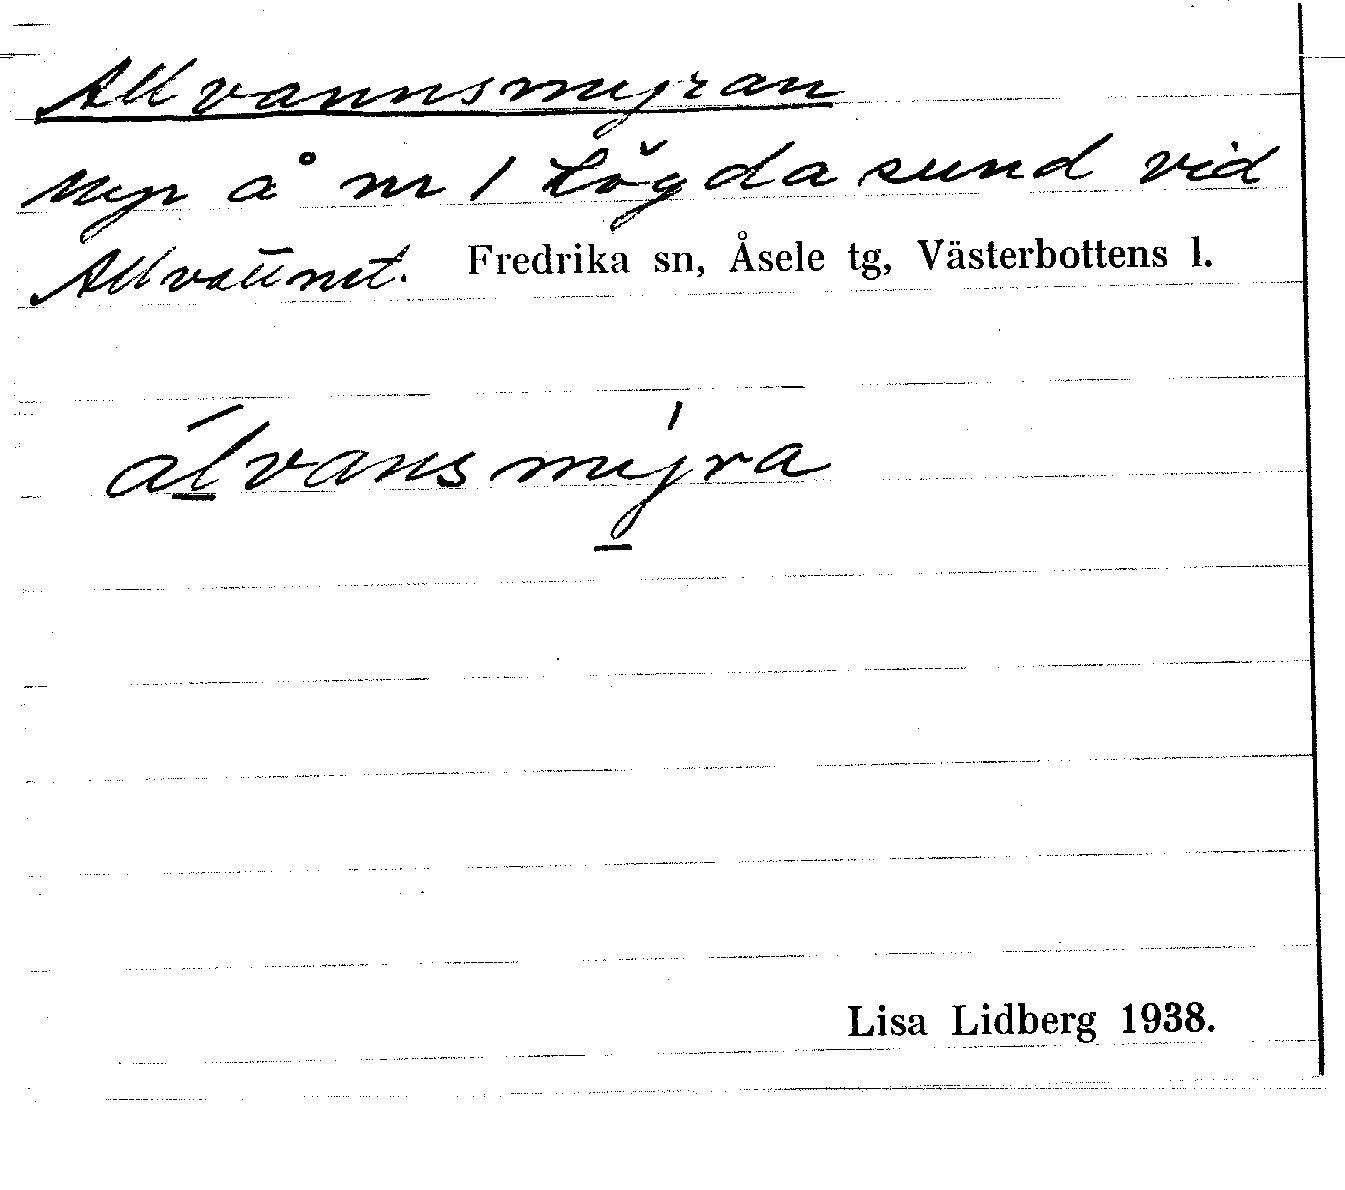 Allvannsmyran
Myr å nr 1 Lögdasund vid
Allvattnet. Fredrika sn, Åsele tg, Västerbottens l.
álvansmýra
Lisa Lidberg 1938.